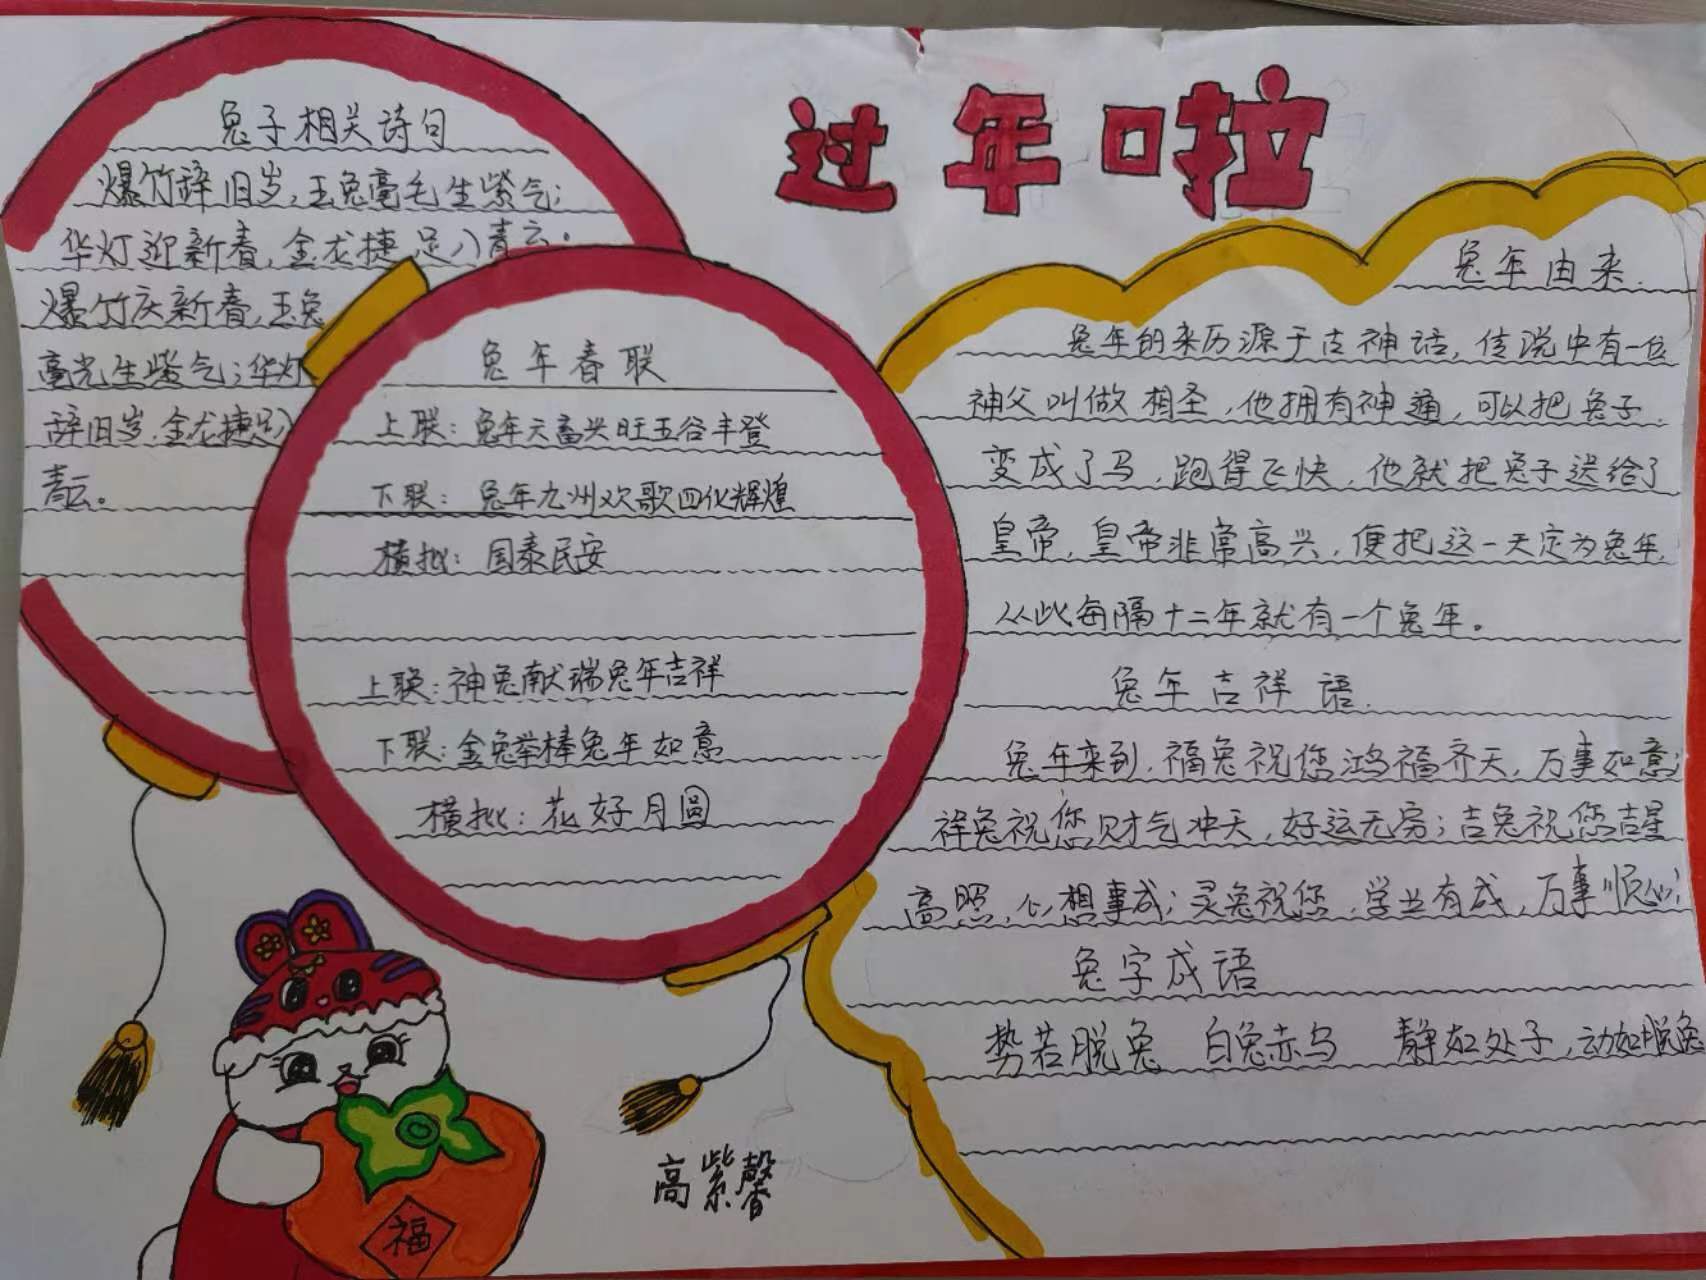 过年啦
兔子相关诗句
爆竹辞旧岁,玉兔毫毛生紫气;
华灯迎新春,金龙捷足入青云。
爆竹庆新春,玉兔
毫光生紫气;华灯
辞旧岁,金龙捷足入
青云。
兔年春联
上联:兔年六畜兴旺五谷丰登
下联:兔年九州欢歌四化辉煌
横批:国泰民安
上联:神兔献瑞兔年吉祥
下联:金兔举棒兔年如意
横批:花好月圆
兔年由来.
兔年的来历源于古神话,传说中有一位
神父叫做相圣,他拥有神通,可以把兔子
变成了马,跑得飞快,他就把兔子送给了
皇帝,皇帝非常高兴,便把这一天定为兔年,
从此每隔十二年就有一个兔年。
兔年吉祥语.
兔年来到,福兔祝您鸿福齐天,万事如意;
祥兔祝您财气冲天,好运无穷;吉兔祝您吉星
高照,心想事成;灵兔祝您,学业有成,万事顺心;
兔字成语
势若脱兔 白兔赤乌 静如处子,动如脱兔
高紫馨
福